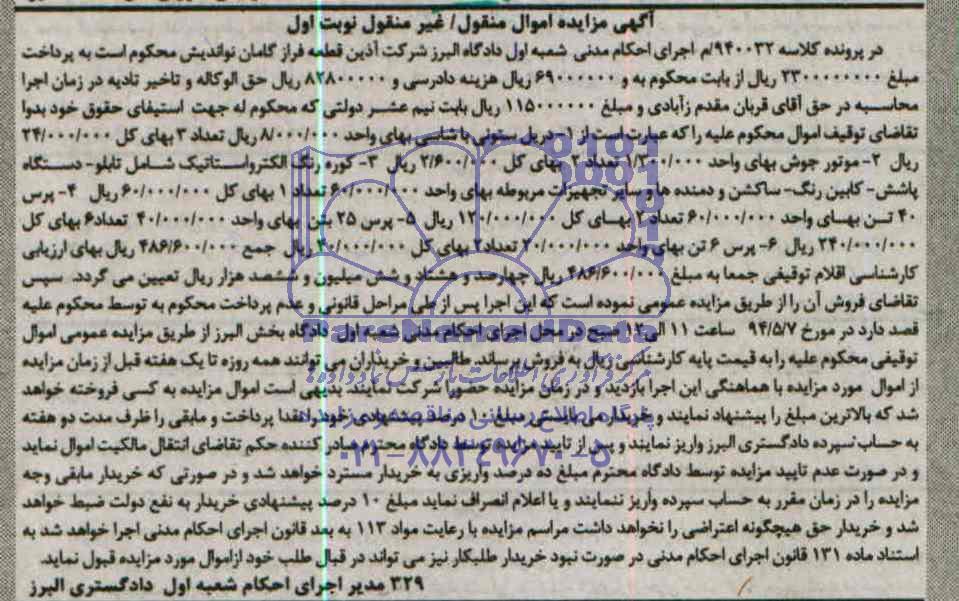 آگهی مزایده اموال منقول/ غیر منقول نوبت اول
در پرونده کلاسه ۹۴۰۰۳۲/م اجرای احکام مدنی شعبه اول دادگاه البرز شرکت آذین قطعه فراز گامان نواندیش محکوم است به پرداخت
مبلغ ۲۳۰۰۰۰۰۰۰۰ ریال از بابت محکوم به و ۶۹۰۰۰۰۰۰ ریال هزینه دادرسی و ۸۲۸۰۰۰۰۰ ریال حق الوکاله و تاخیر تادیه در زمان اجرا
محاسبه در حق آقای قربان مقدم زآبادی و مبلغ ۱۱۵۰۰۰۰۰۰ ریال بابت نیم عشر دولتی که محکوم له جهت استیفای حقوق خود بدوا
تقاضای توقیف اموال محکوم علیه را که عبارت است از ۱-دریل ستونی با شاسی بهای واحد ۸/۰۰۰/۰۰۰ ریال تعداد ۳ بهای کل ۲۴/۰۰۰/۰۰۰
ریال ۲- موتور جوش بهای واحد ۱/۳۰۰/۰۰۰ تعداد ۲ بهای کل ۲/۶۰۰/۰۰۰ ریال ۳- کوره رنگ الکترواستاتیک شامل تابلو- دستگاه
پاشش- کابین رنگ- ساکشن و دمنده ها و سایر تجهیزات مربوطه بهای واحد ۶۰۰۰۰۰۰۰ تعداد ۱ بهای کل ۶۰/۰۰۰/۰۰۰ ریال ۴- پرس
۴۰ تن بهای واحد ۶۰/۰۰۰/۰۰۰ تعداد ۲ بهای کل ۱۲۰/۰۰۰/۰۰۰ ریال ۵- پرس ۲۵ تن بهای واحد ۴۰/۰۰۰/۰۰۰ تعداد۶ بهای کل
۲۴۰/۰۰۰/۰۰۰ ریال ۶- پرس ۶ تن بهای واحد ۲۰/۰۰۰/۰۰۰ تعداد۲ بهای کل ۴۰/۰۰۰/۰۰۰ ریال جمع ۴۸۶/۶۰۰/۰۰۰ ریال بهای ارزیابی
کارشناسی اقلام توقیفی جمعا به مبلغ ۴۸۶/۶۰۰/۰۰۰ ریال چهارصد و هشتاد و شش میلیون و ششصد هزار ریال تعیین می گردد. سپس
تقاضای فروش آن را از طریق مزایده عمومی نموده است که این اجرا پس از طی مراحل قانونی و عدم پرداخت محکوم به توسط محکوم علیه
قصد دارد در مورخ ۹۴/۵/۷ ساعت ۱۱ الی ۱۲ صبح در محل اجرای احکام مدنی شعبه اول دادگاه بخش البرز از طریق مزایده عمومی اموال
توقیفی محکوم علیه را به قیمت پایه کارشناسی ریال به فروش برساند. طالبین و خریداران می توانند همه روزه تا یک هفته قبل از زمان مزایده
از اموال مورد مزایده با هماهنگی این اجرا بازدید و در زمان مزایده حضورا شرکت نمایند. بدیهی است اموال مزایده به کسی فروخته خواهد
شد که بالاترین مبلغ را پیشنهاد نمایند و خریدار می بایستی مبلغ ۱۰ درصد پیشنهادی خود را نقدا پرداخت و مابقی را ظرف مدت دو هفته
به حساب سپرده دادگستری البرز واریز نمایند و پس از تایید مزایده توسط دادگاه محترم صادر کننده حکم تقاضای انتقال مالکیت اموال نماید
و در صورت عدم تایید مزایده توسط دادگاه محترم مبلغ ده درصد واریزی به خریدار مسترد خواهد شد و در صورتی که خریدار مابقی وجه
مزایده را در زمان مقرر به حساب سپرده واریز ننمایند و یا اعلام انصراف نماید مبلغ ۱۰ درصد پیشنهادی خریدار به نفع دولت ضبط خواهد
شد و خریدار حق هیچگونه اعتراضی را نخواهد داشت مراسم مزایده با رعایت مواد ۱۱۳ به بعد قانون اجرای احکام مدنی اجرا خواهد شد به
استناد ماده ۱۳۱ قانون اجرای احکام مدنی در صورت نبود خریدار طلبکار نیز می تواند در قبال طلب خود ازاموال مورد مزایده قبول نماید.
۳۲۹ مدیر اجرای احکام شعبه اول دادگستری البرز
ParsNamadData
۰۲۱-۸۸۳۴۹۶۷۰-۵